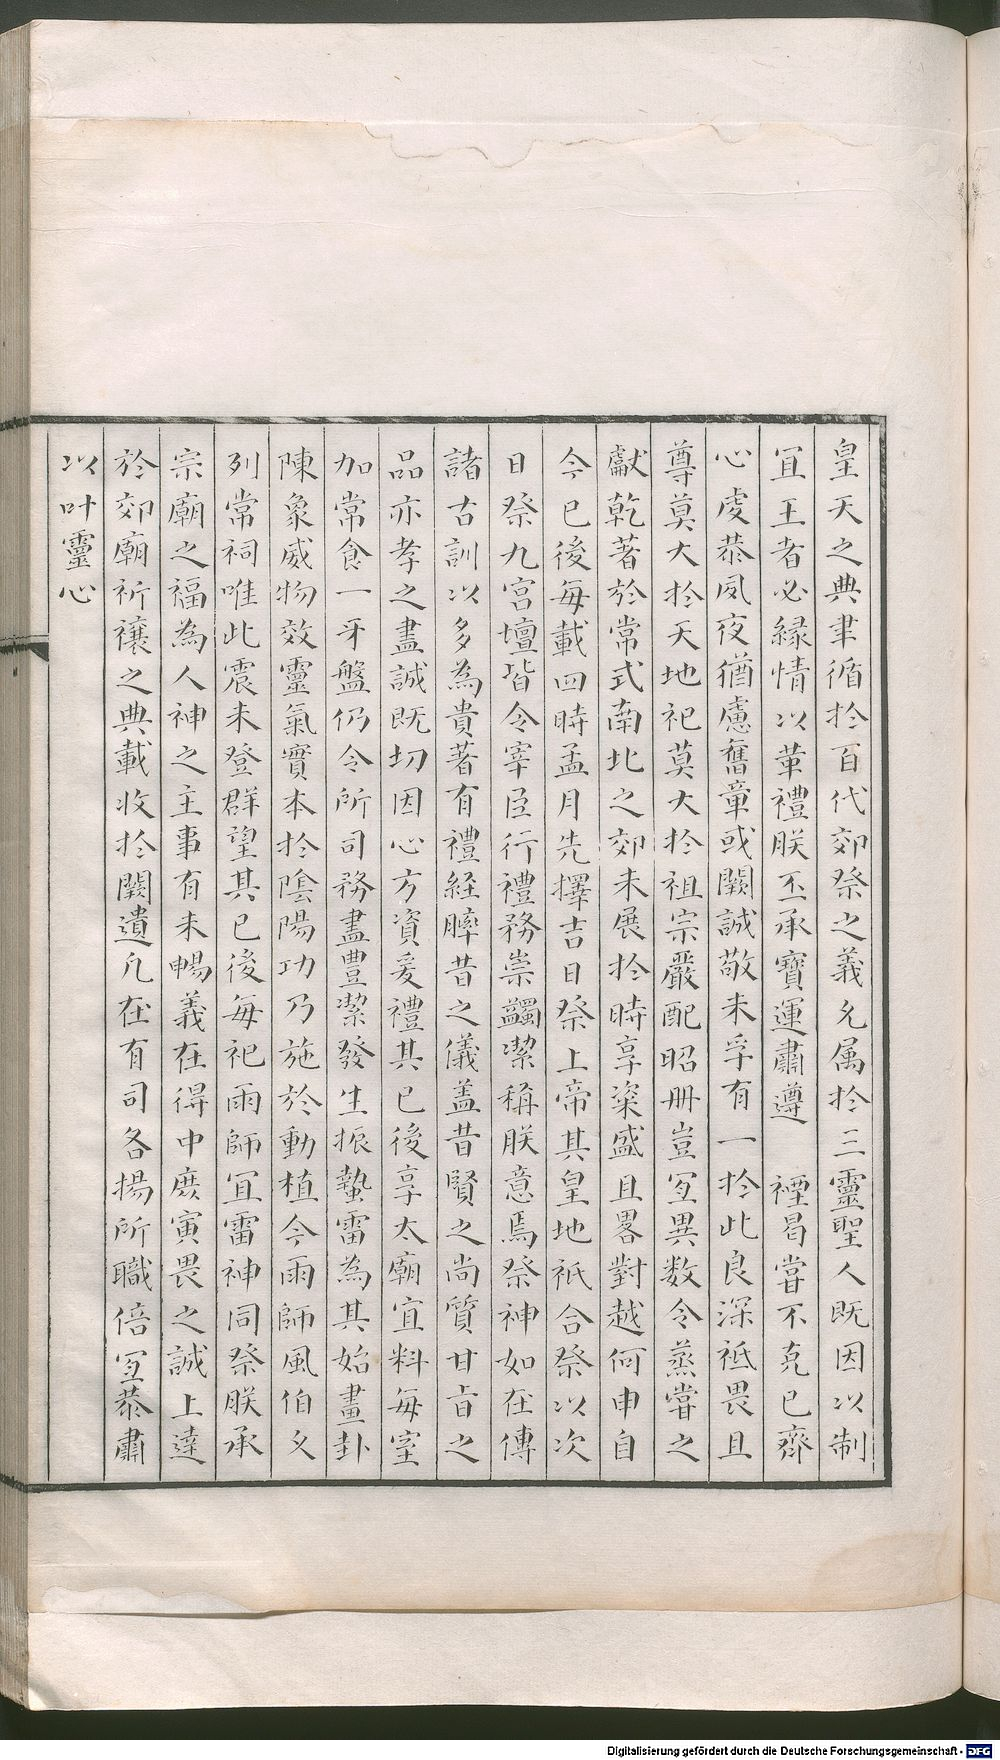 皇天之典聿循扵百代郊祭之義允属扵三靈聖人既因以制
冝王者必縁情以革禮朕丕承寳運肅遵　禋𣅜甞不克已齊
心虔恭夙夜猶慮舊章或闕誠敬未孚有一扵此良深祗畏且
尊莫大扵天地祀莫大扵祖宗嚴配昭册豈冝異数今蒸甞之
獻乾著於常式南北之郊未展扵時享粢盛且畧對越何申自
今已後每載四時孟月先擇吉日祭上帝其皇地祇合祭以次
日祭九宮壇皆令宰臣行禮務崇蠲潔稱朕意焉祭神如在傳
諸古訓以多為貴著有禮経膟昔之儀盖昔賢之尚質甘㫖之
品亦孝之盡誠既切因心方資爰禮其已後享太廟宜料每室
加常食一牙盤仍令所司務盡豊潔發生振蟄雷為其始畫卦
陳象威物效靈氣實本扵陰陽功乃施於動植今雨師風伯久
列常祠唯此震未登群望其已後每祀雨師冝雷神同祭朕承
宗廟之福為人神之主事有未暢義在得中庶寅畏之誠上達
於郊廟祈禳之典載收扵闕遺凡在有司各揚所職倍冝恭肅
以叶靈心
Digitalisierung gefördert durch die Deutsche Forschungsgemeinschaft - DFG